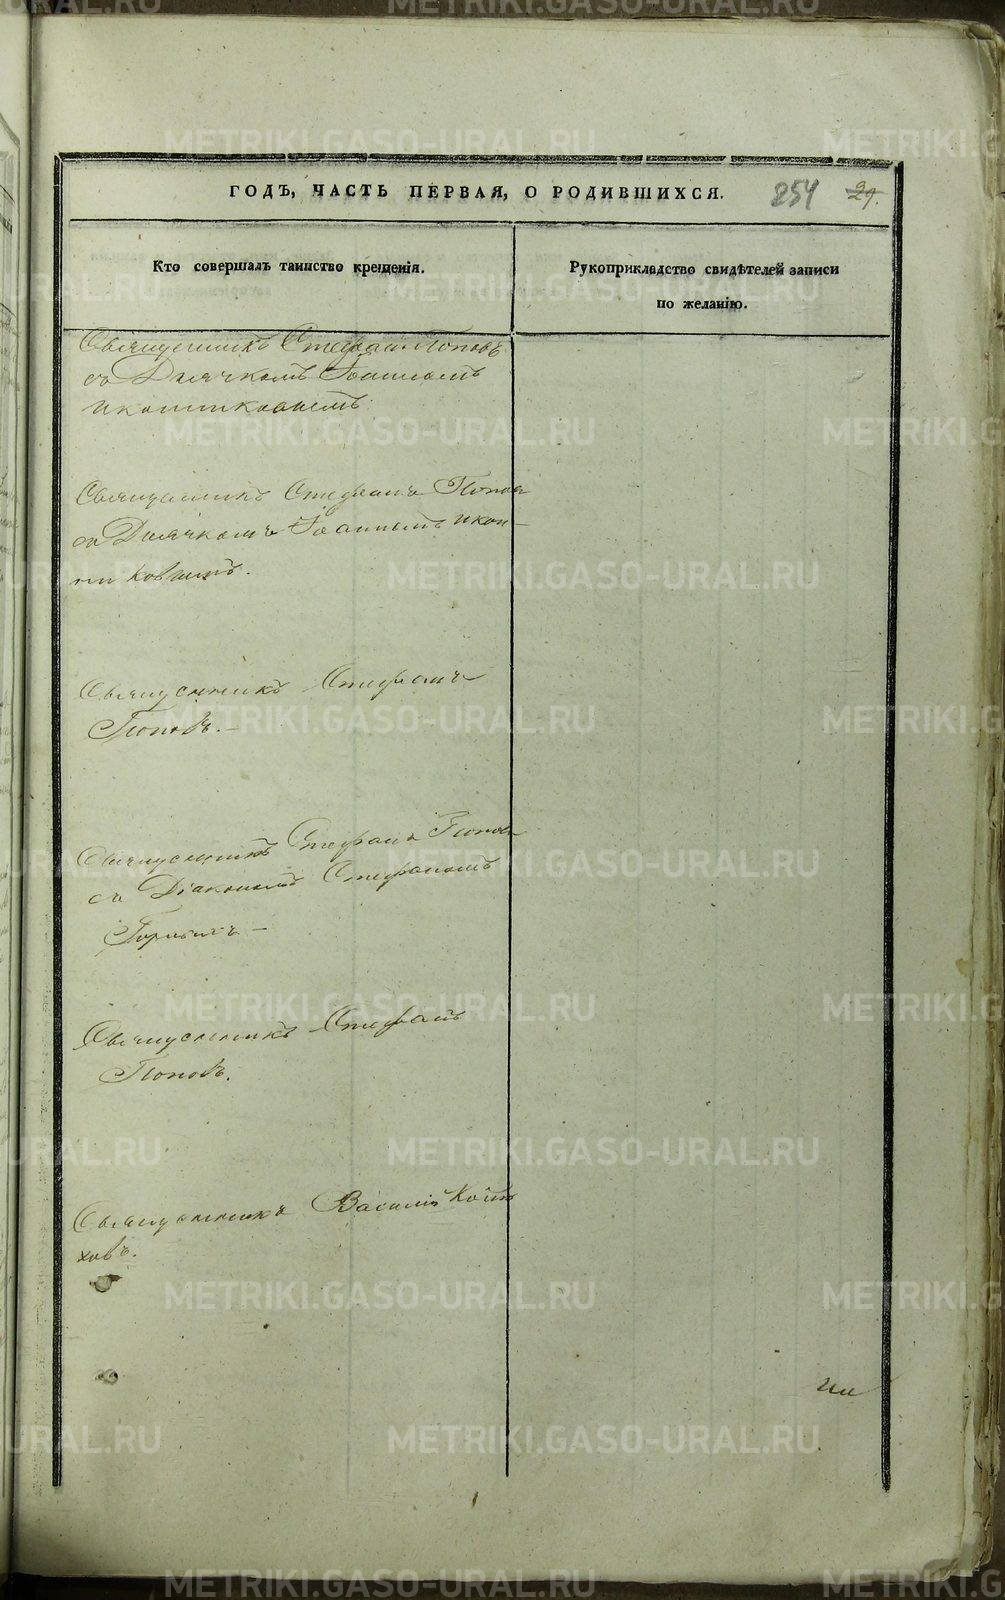 ГОДЪ, ЧАСТЬ ПЕРВАЯ, О РОДИВШИХСЯ. 254 29.
Кто совершалъ таинство крещенія.
Рукоприкладство свидѣтелей записи
по желанію.
Священникъ Стефанъ Поповъ
съ Дьячкомъ Іоанномъ
Иконниковымъ
Священникъ Стефанъ Попов
съ Дьячкомъ Іоанномъ Икон-
никовымъ.
Священникъ Стефанъ
Поповъ.-
Священникъ Стефанъ Попов
съ Діакономъ Стефаномъ
Священникъ Стефанъ
Поповъ.
Священникъ Василій
ховъ.
METRIKI.GASO-URAL.RU